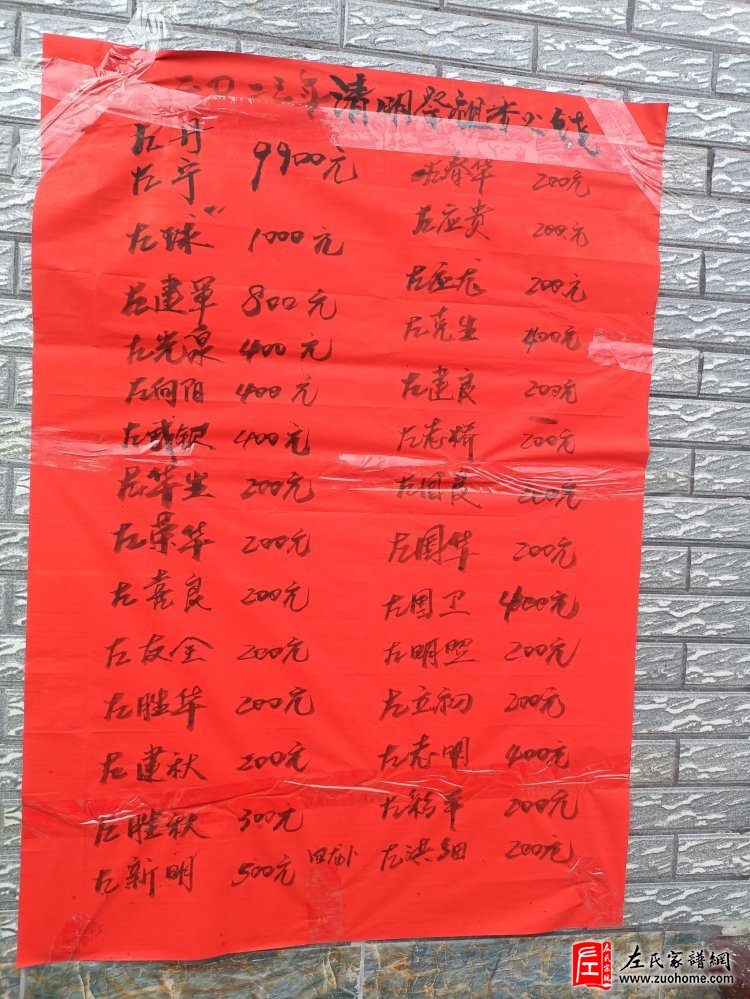 二〇二三年清明祭祖香火钱
左丹
左宁 9900元
左球 1000元
左建军 800元
左光源 400元
左向阳 400元
左成钦 400元
左华生 200元
左荣华 200元
左喜良 200元
左友全 200元
左胜华 200元
左建秋 200元
左胜秋 300元
左新明 500元
左春华 200元
左应贵 200元
左应龙 200元
左克生 400元
左建良 200元
左志娇 200元
左国良 200元
左国华 200元
左国卫 400元
左明照 200元
左立初 200元
左志明 400元
左稳平 200元
回龙卜 左洪细 200元
左氏宗亲
左氏家譜網
www.zuohome.com